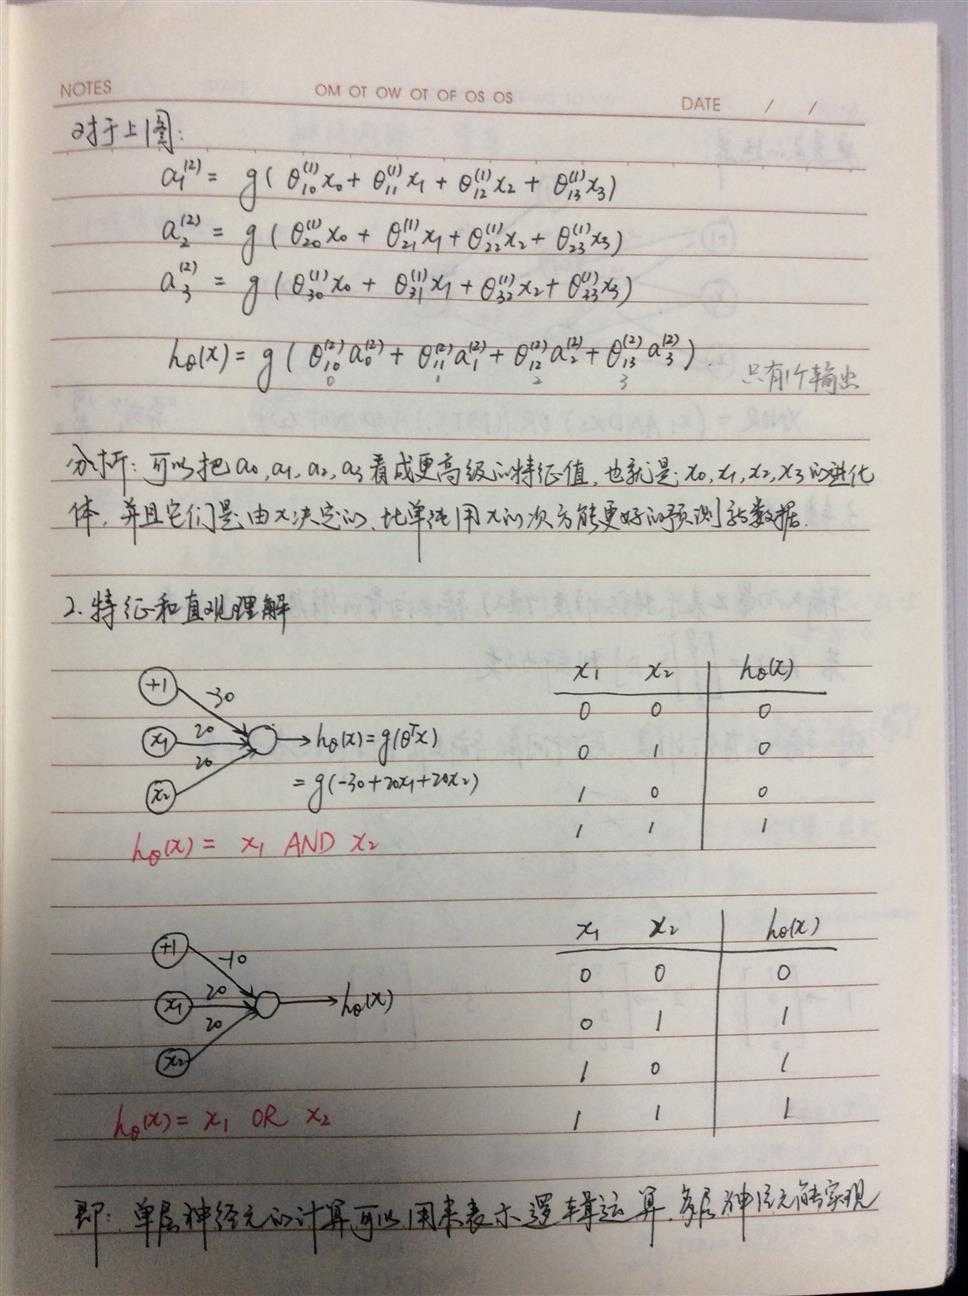 NOTES OM OT OW OT OF OS OS DATE / /
对于上图:
a₁⁽²⁾ = g( θ₁₀⁽¹⁾x₀ + θ₁₁⁽¹⁾x₁ + θ₁₂⁽¹⁾x₂ + θ₁₃⁽¹⁾x₃)
a₂⁽²⁾ = g( θ₂₀⁽¹⁾x₀ + θ₂₁⁽¹⁾x₁ + θ₂₂⁽¹⁾x₂ + θ₂₃⁽¹⁾x₃)
a₃⁽²⁾ = g( θ₃₀⁽¹⁾x₀ + θ₃₁⁽¹⁾x₁ + θ₃₂⁽¹⁾x₂ + θ₃₃⁽¹⁾x₃)
hθ(x) = g( θ₁₀⁽²⁾a₀⁽²⁾ + θ₁₁⁽²⁾a₁⁽²⁾ + θ₁₂⁽²⁾a₂⁽²⁾ + θ₁₃⁽²⁾a₃⁽²⁾).
0 1 2 3 只有1个输出
分析: 可以把a₀, a₁, a₂, a₃看成更高级的特征值, 也就是x₀, x₁, x₂, x₃的进化
体, 并且它们是由x决定的, 比单纯用x的次方能更好的预测新数据.
2. 特征和直观理解
x₁ x₂ hθ(x)
+1 -30
0 0 0
x₁ 20 hθ(x) = g(θᵀx)
0 1 0
x₂ 20 = g(-30+20x₁+20x₂)
1 0 0
1 1 1
hθ(x) = x₁ AND x₂
x₁ x₂ hθ(x)
+1 -10
0 0 0
x₁ 20 hθ(x)
0 1 1
x₂ 20
1 0 1
1 1 1
hθ(x) = x₁ OR x₂
即: 单层神经元的计算可以用来表示逻辑运算, 多层神经元能实现